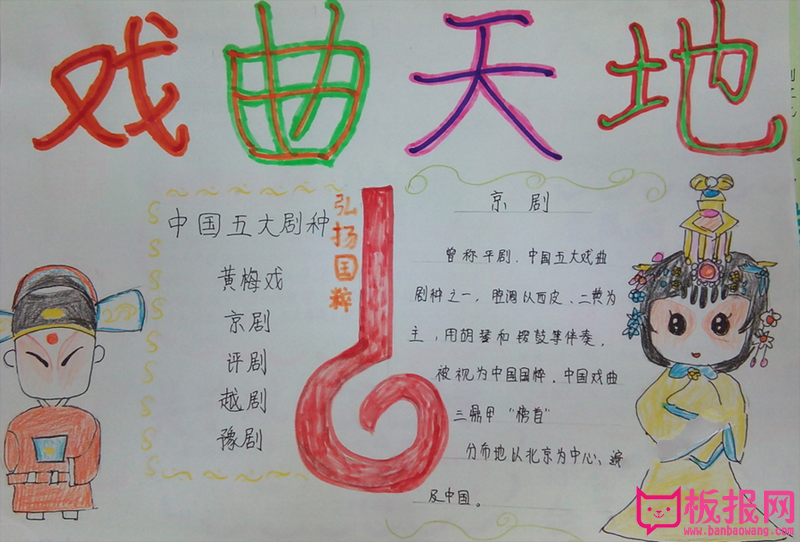 戏曲天地
中国五大剧种
黄梅戏
京剧
评剧
越剧
豫剧
弘扬国粹
京剧
曾称平剧.中国五大戏曲
剧种之一,腔调以西皮、二黄为
主,用胡琴和锣鼓等伴奏,
被视为中国国粹,中国戏曲
三鼎甲“榜首”
分布地以北京为中心、遍
及中国。
板报网
www.banbaowang.com